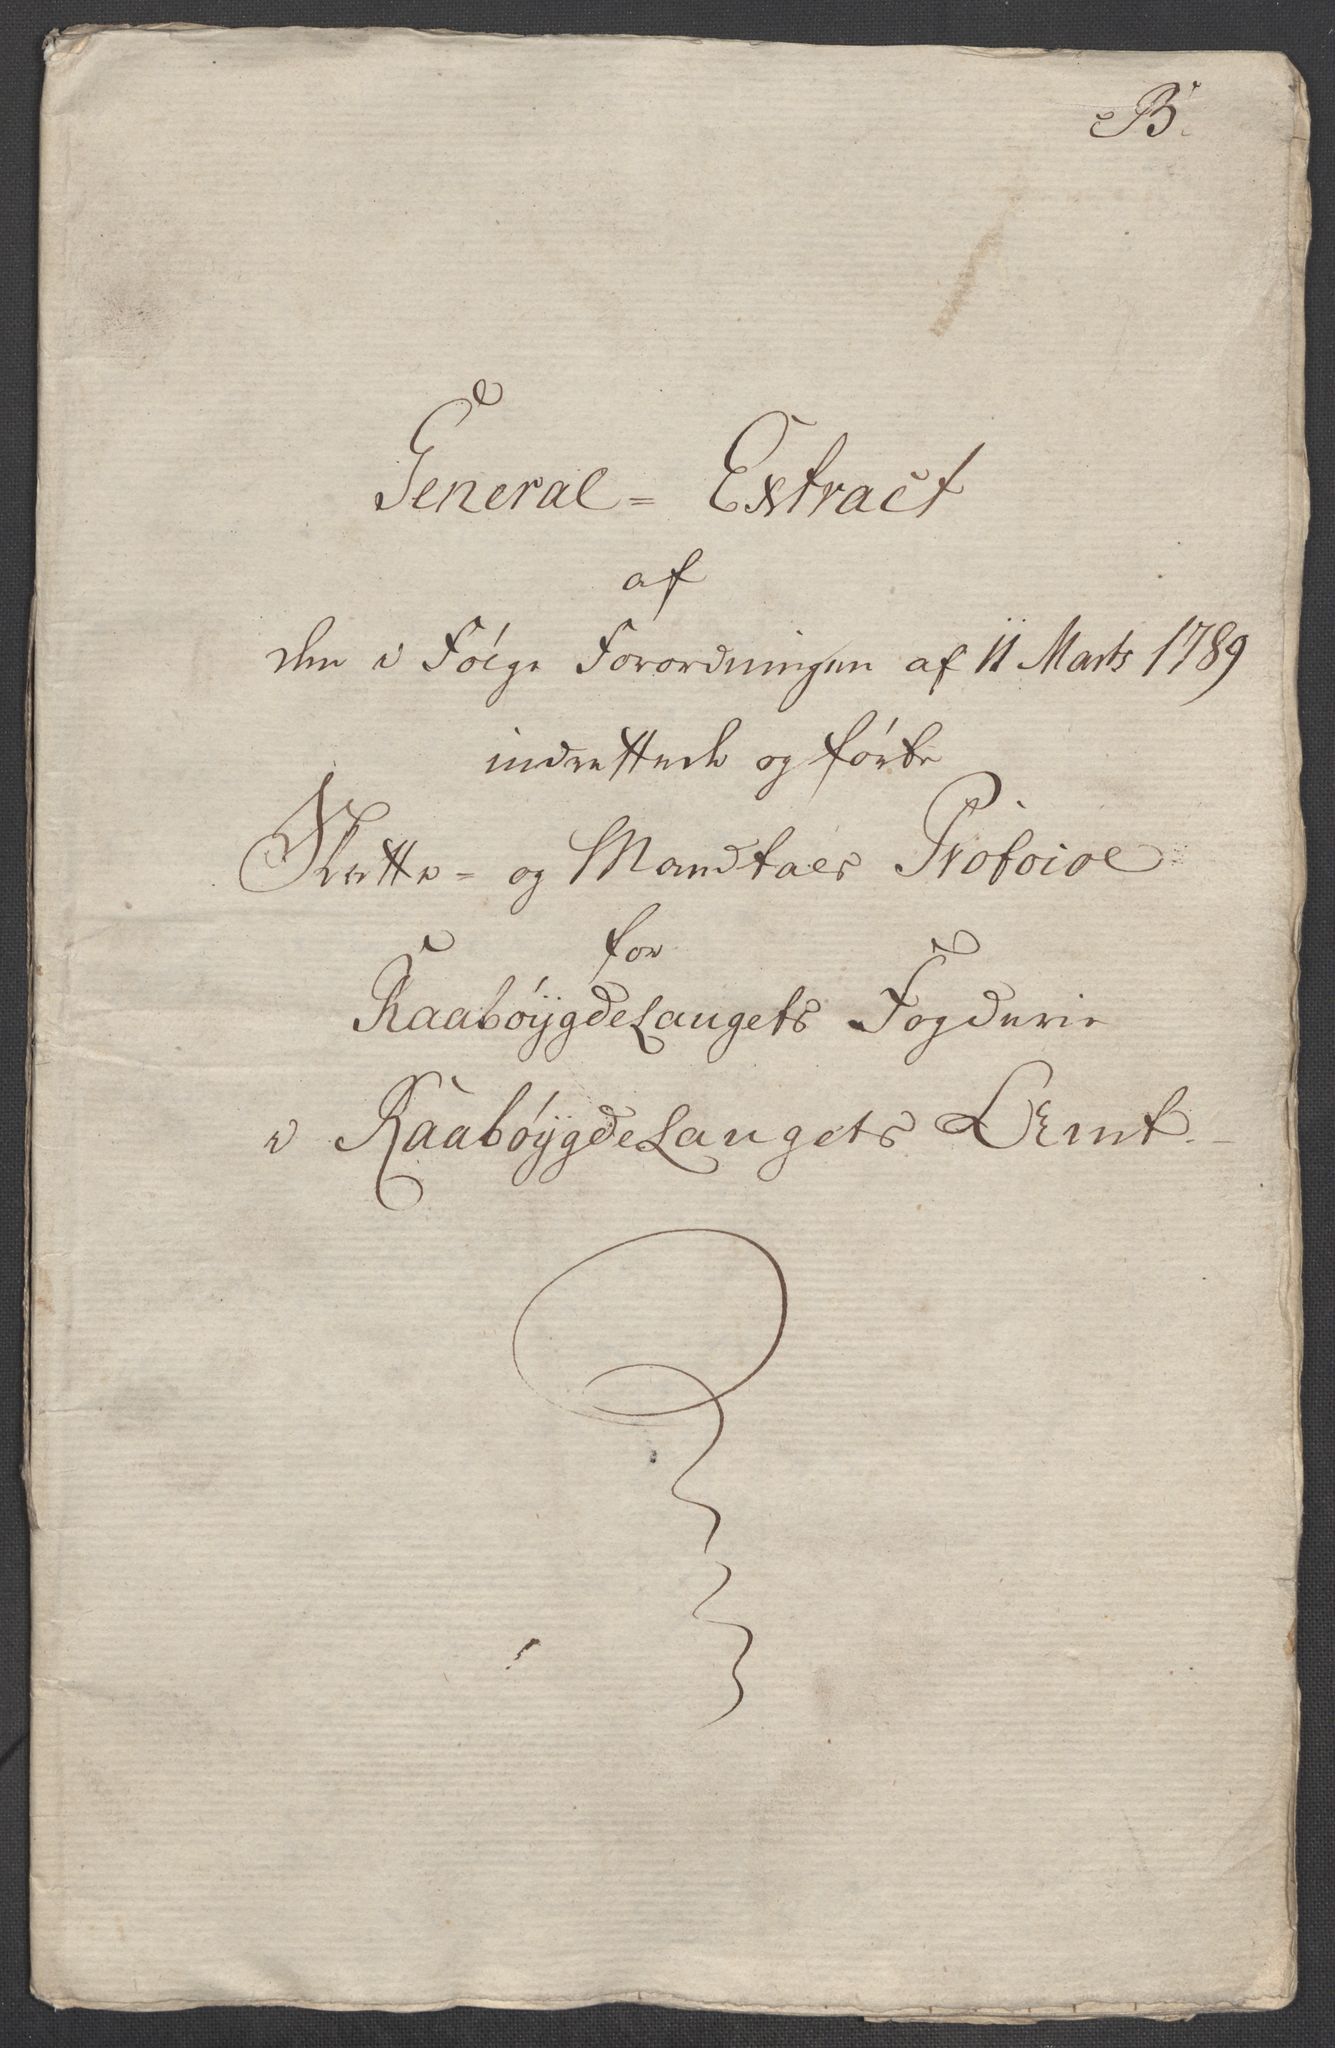 B.
General = Extract
af
den i Følge Forordningen af 11 Marts 1789
indrettede og førte
Skatte- og Mandtals Protocol
for
Raabøÿgdelaugets Fogderie
i Raabøÿgdelaugets Lemt.